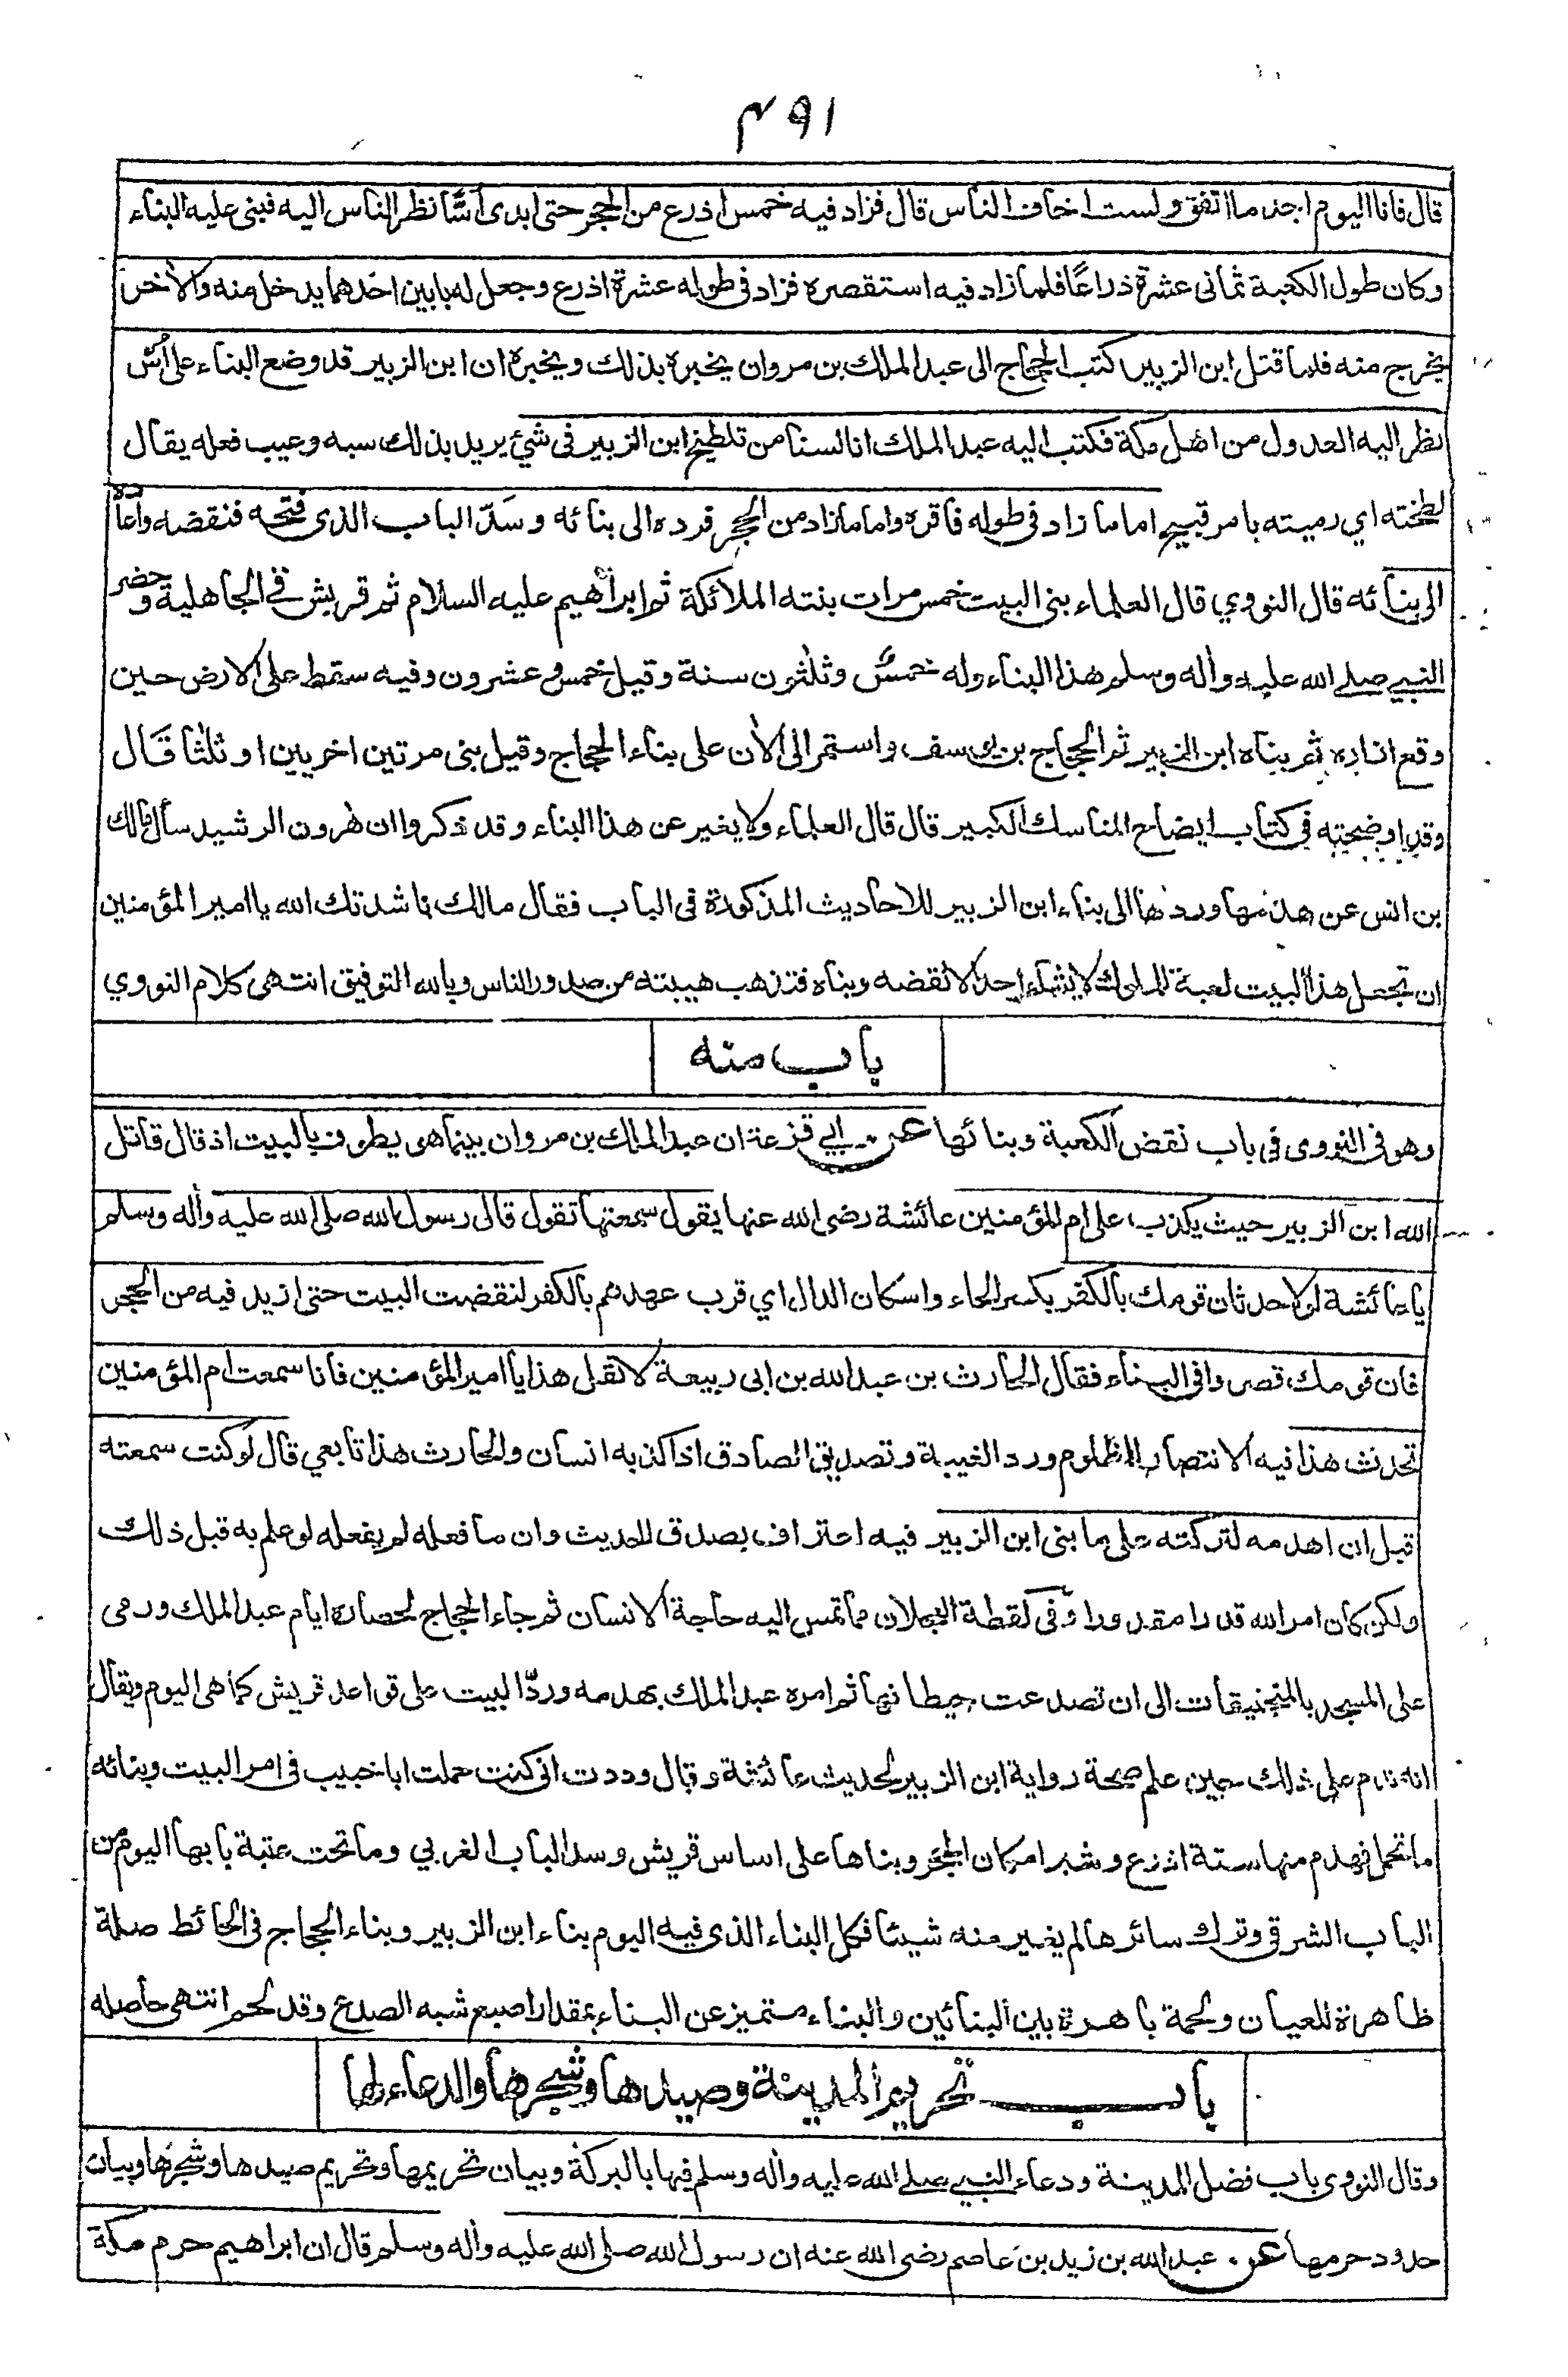 ۴۹۱
قال فانا اليوم اجد ما انفق ولست اخاف الناس قال فزاد فيه خمس اذرع من الحجر حتى ابدى اسًّا نظر الناس اليه فبنى عليه البناء
وكان طول الكعبة ثمانى عشرة ذراعًا فلما زاد فيه استقصره فزاد فى طوله عشرة اذرع وجعل له بابين احدهما يدخل منه والاٰخر
يخرج منه فلما قتل ابن الزبير كتب الحجاج الى عبد الملك بن مروان يخبره بذلك ويخبره ان ابن الزبير قد وضع البناء على اُسّ
نظر اليه العدول من اهل مكة فكتب اليه عبد الملك انا لسنا من تلطيخ ابن الزبير فى شئ يريد بذلك سبه وعيب فعله يقال
لطخته اي رميته بامر قبيح اما ما زاد فى طوله فاقره واما ما زاد من الحجر فرده الى بنائه وسَدّ الباب الذى فتحه فنقضه واعاده
الى بنائه قال النووي قال العلماء بنى البيت خمس مرات بنته الملائكة ثم ابراهيم عليه السلام ثم قريش فى الجاهلية وحضر
النبى صلے الله عليه واٰله وسلم هذا البناء وله خمسٌ وثلثون سنة وقيل خمس وعشرون وفيه سقط على الارض حين
وقع ازاره ثم بناه ابن الزبير ثم الحجاج بن يوسف واستمر الى الاٰن على بناء الحجاج وقيل بنى مرتين اخريين او ثلٰثا قَال
وقد اوضحته فى كتاب ايضاح المناسك الكبير قال قال العلماء ولا يغير عن هذا البناء وقد ذكروا ان هٰرون الرشيد سأل مالك
بن انس عن هدمها وردها الى بناء ابن الزبير للاحاديث المذكورة فى الباب فقال مالك ناشدتك الله يا امير المؤمنين
ان تجعل هذا البيت لعبة للملوك لا يشاء احد الا نقضه وبناه فتذهب هيبته من صدور الناس وبالله التوفيق انتهى كلام النووي
باب منه
وهو فى النووى فى باب نقض الكعبة وبنائها عن ابي قزعة ان عبد الملك بن مروان بينما هى يطوف بالبيت اذ قال قاتل
الله ابن الزبير حيث يكذب على ام المؤمنين عائشة رضى الله عنها يقول سمعتها تقول قال رسول الله صلى الله عليه واٰله وسلم
يا عائشة لولا حدثان قومك بالكفر بكسر الحاء واسكان الدال اي قرب عهدهم بالكفر لنقضت البيت حتى ازيد فيه من الحجر
فان قومك قصروا فى البناء فقال الحارث بن عبد الله بن ابى ربيعة لا تقل هذا يا امير المؤمنين فانا سمعت ام المؤمنين
تحدث هذا فيه الانتصار للمظلوم ورد الغيبة وتصديق الصادق اذا كذبه انسان والحارث هذا تابعي قال لو كنت سمعته
قبل ان اهدمه لتركته على ما بنى ابن الزبير فيه اعتراف بصدق الحديث وان ما فعله لم يفعله لو علم به قبل ذلك
ولكن كان امر الله قدرا مقدورا وفى لقطة العجلان مما تمس اليه حاجة الانسان ثم جاء الحجاج لحصاره ايام عبد الملك ورمى
على المسجد بالمنجنيقات الى ان تصدعت حيطانها ثم امره عبد الملك بهدمه وردّ البيت على قواعد قريش كما هى اليوم ويقال
انه ندم على ذلك حين علم صحة رواية ابن الزبير لحديث عائشة وقال وددت انى كنت حملت ابا خبيب فى امر البيت وبنائه
ما تحمل فهدم منها ستة اذرع وشبرا مكان الحجر وبناها على اساس قريش وسد الباب الغربي وما تحت عتبة بابها اليوم من
الباب الشرقى وترك سائرها لم يغير منه شيئا فكل البناء الذى فيه اليوم بناء ابن الزبير وبناء الحجاج فى الحائط صلة
ظاهرة للعيان ولحمة باهرة بين البنائين والبناء متميز عن البناء بمقدار اصبع شبه الصدع وقد لحم انتهى حاصله
باب تحريم المدينة وصيدها وشجرها والدعاء لها
وقال النووى باب فضل المدينة ودعاء النبى صلے الله عليه واٰله وسلم فيها بالبركة وبيان تحريمها وتحريم صيدها وشجرها وبيان
حدود حرمها عن عبد الله بن زيد بن عاصم رضى الله عنه ان رسول الله صلى الله عليه واٰله وسلم قال ان ابراهيم حرم مكة